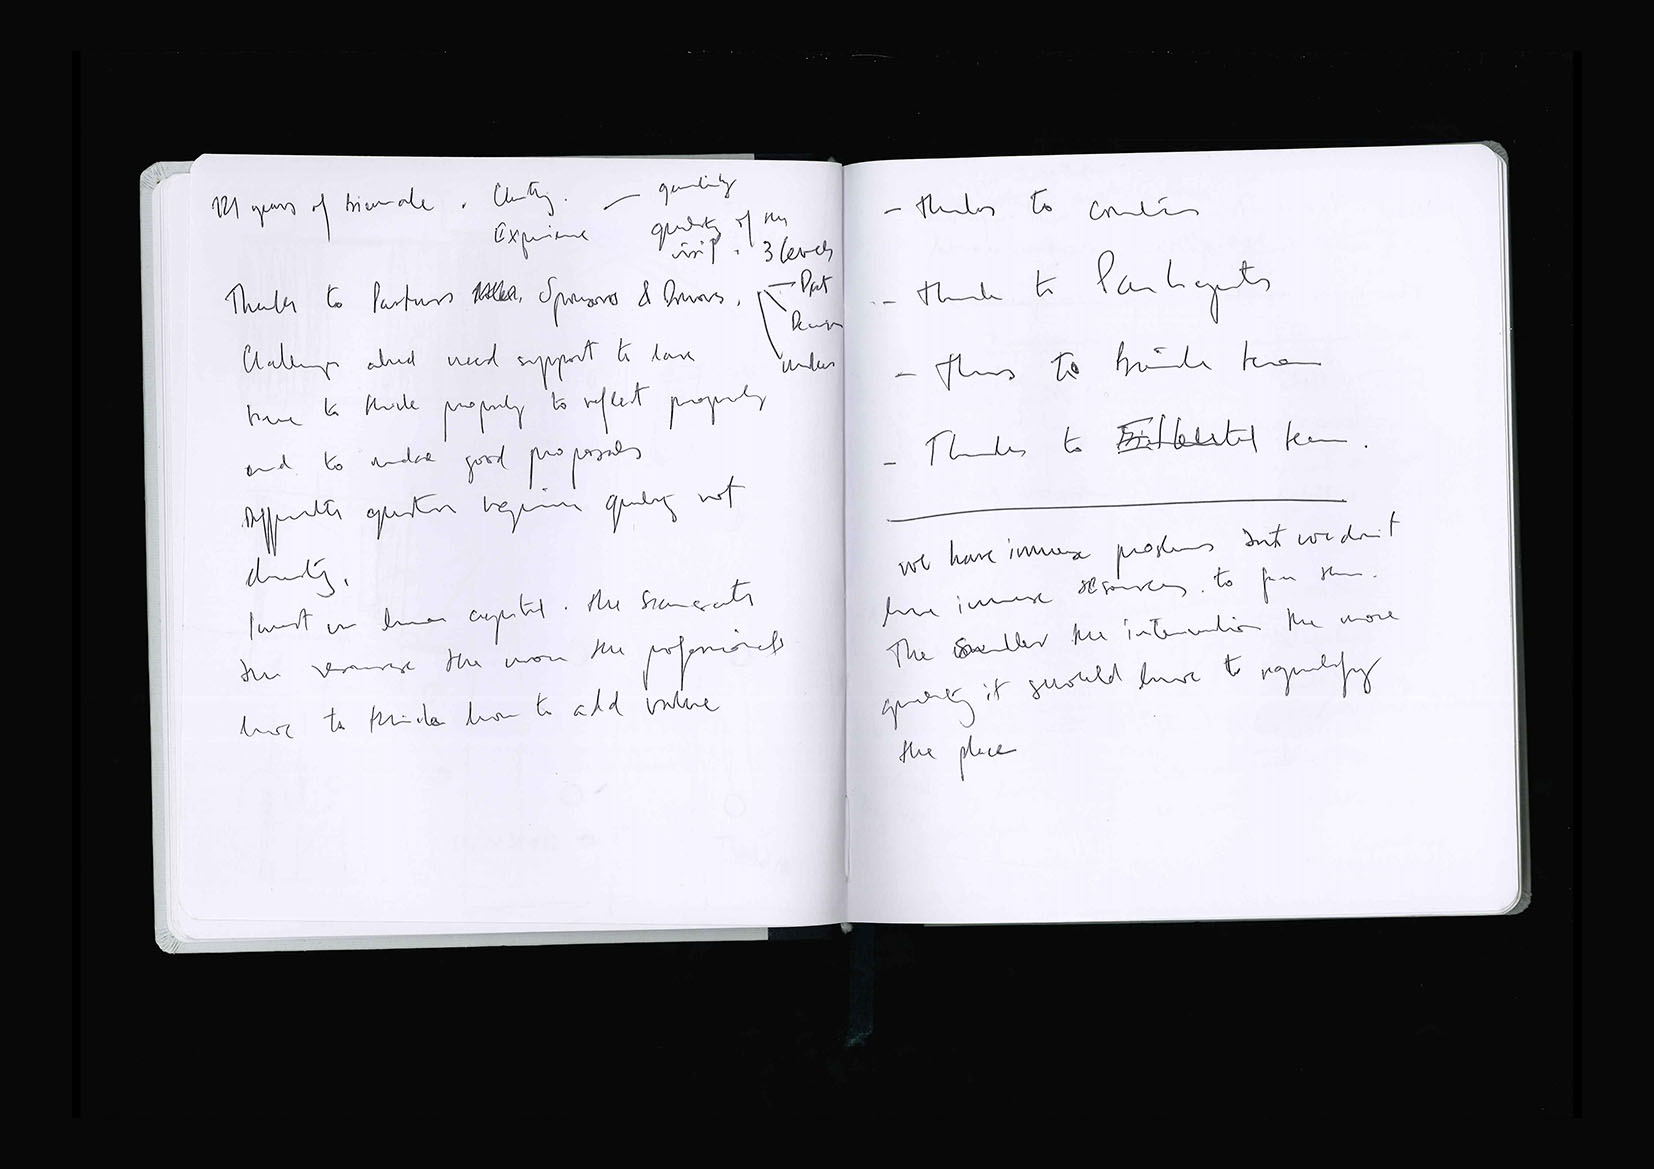 years of biennale. Clarity. — quality
Experience quality of the
visit. 3 levels
Thanks to Partners Sponsors & Donors.
Challenges ahead need support to have
time to think properly to reflect properly
and to make good proposals
Difficult question require quality not
quantity.
Invest in human capital. The scarcer
the resource the more the professionals
have to think how to add value
- thanks to countries
- thanks to Participants
- thanks to biennale team
- Thanks to team.
we have immense problems but we don't
have immense resources to fix them.
The smaller the intervention the more
quality it should have to requalify
the place